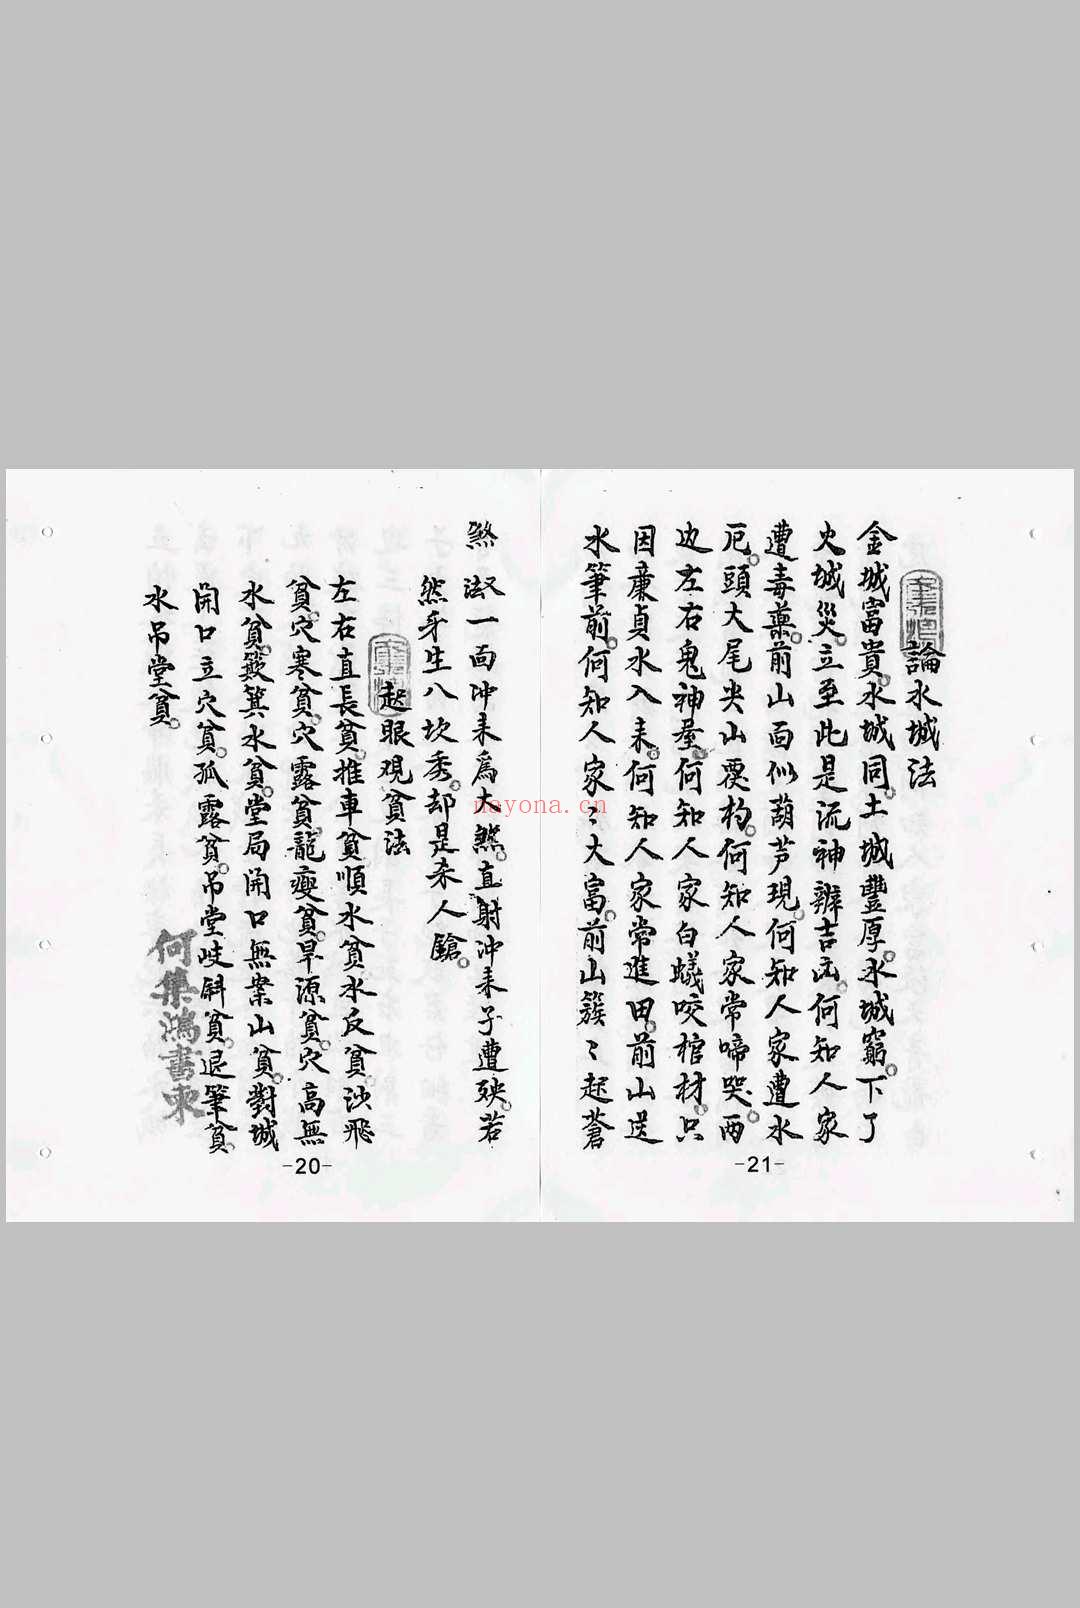 論水城法
金城富貴。水城同。土城豐厚。水城窮。下了
火城災。立至此是流神辨吉凶。何知人家
遭毒藥。前山面似葫芦現。何知人家遭水
厄。頭大尾尖山覆杓。何知人家常啼哭。兩
边左右鬼神屋。何知人家白蟻咬棺材。只
因廉貞水入耒。何知人家常進田。前山送
水筆前。何知人家〻大富。前山簇〻起蒼
-21-
煞 一面冲耒為大煞。直射冲耒子遭殃。若
然牙生八坎秀。却是杀人鎗。
起眼观貧法
左右直長貧。推車貧順水貧水反貧沙飛
貧。穴寒貧。穴露貧。龍瘦貧。旱源貧。穴高無
水貧。簸箕水貧。堂局開口無案山貧。對城
開口立穴貧。孤露貧。吊堂岐斜貧。退筆貧。
水吊堂貧。
何集鴻書柬
-20-
nayona.cn